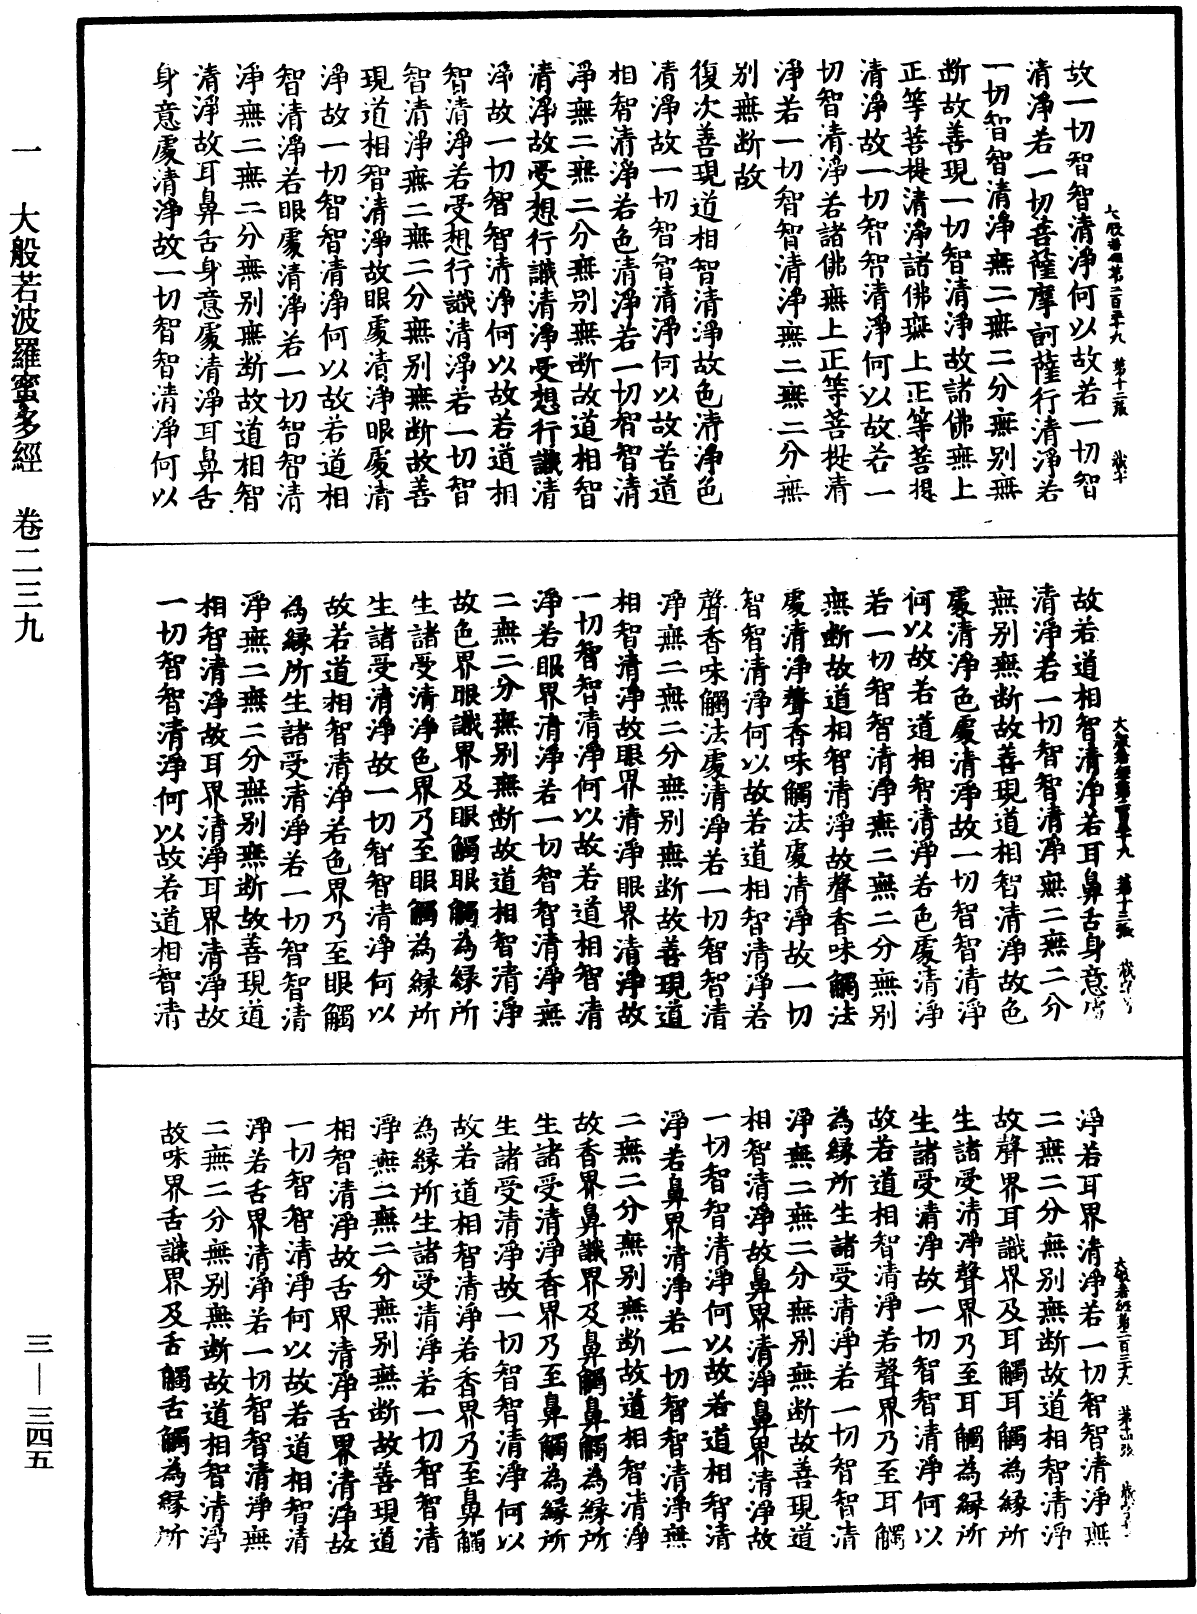 故一切智智清淨何以故若一切智智
清淨若一切菩薩摩訶薩行清淨若
一切智智清淨無二無二分無別無
断故善現一切智清淨故諸佛無上
正等菩提清淨諸佛無上正等菩提
清淨故一切智智清淨何以故若一
切智清淨若諸佛無上正等菩提清
淨若一切智智清淨無二無二分無
別無断故
復次善現道相智清淨故色清淨色
清淨故一切智智清淨何以故若道
相智清淨若色清淨若一切智智清
淨無二無二分無別無断故道相智
清淨故受想行識清淨受想行識清
淨故一切智智清淨何以故若道相
智清淨若受想行識清淨若一切智
智清淨無二無二分無別無断故善
現道相智清淨故眼處清淨眼處清
淨故一切智智清淨何以故若道相
智清淨若眼處清淨若一切智智清
淨無二無二分無別無断故道相智
清淨故耳鼻舌身意處清淨耳鼻舌
身意處清淨故一切智智清淨何以
大般若經第二百三十九 第十二張
故若道相智清淨若耳鼻舌身意處
清淨若一切智智清淨無二無二分
無別無断故善現道相智清淨故色
處清淨色處清淨故一切智智清淨
何以故若道相智清淨若色處清淨
若一切智智清淨無二無二分無別
無断故道相智清淨故聲香味觸法
處清淨聲香味觸法處清淨故一切
智智清淨何以故若道相智清淨若
聲香味觸法處清淨若一切智智清
淨無二無二分無別無断故善現道
相智清淨故眼界清淨眼界清淨故
一切智智清淨何以故若道相智清
淨若眼界清淨若一切智智清淨無
二無二分無別無断故道相智清淨
故色界眼識界及眼觸眼觸為緣所
生諸受清淨色界乃至眼觸為緣所
生諸受清淨故一切智智清淨何以
故若道相智清淨若色界乃至眼觸
為緣所生諸受清淨若一切智智清
淨無二無二分無別無断故善現道
相智清淨故耳界清淨耳界清淨故
一切智智清淨何以故若道相智清
大般若經第二百三十九 第十三張
淨若耳界清淨若一切智智清淨無
二無二分無別無断故道相智清淨
故聲界耳識界及耳觸耳觸為緣所
生諸受清淨聲界乃至耳觸為緣所
生諸受清淨故一切智智清淨何以
故若道相智清淨若聲界乃至耳觸
為緣所生諸受清淨若一切智智清
淨無二無二分無別無断故善現道
相智清淨故鼻界清淨鼻界清淨故
一切智智清淨何以故若道相智清
淨若鼻界清淨若一切智智清淨無
二無二分無別無断故道相智清淨
故香界鼻識界及鼻觸鼻觸為緣所
生諸受清淨香界乃至鼻觸為緣所
生諸受清淨故一切智智清淨何以
故若道相智清淨若香界乃至鼻觸
為緣所生諸受清淨若一切智智清
淨無二無二分無別無断故善現道
相智清淨故舌界清淨舌界清淨故
一切智智清淨何以故若道相智清
淨若舌界清淨若一切智智清淨無
二無二分無別無断故道相智清淨
故味界舌識界及舌觸舌觸為緣所
大般若經第二百三十九 第十四張
一 大般若波羅蜜多經 卷二三九
三—三四五